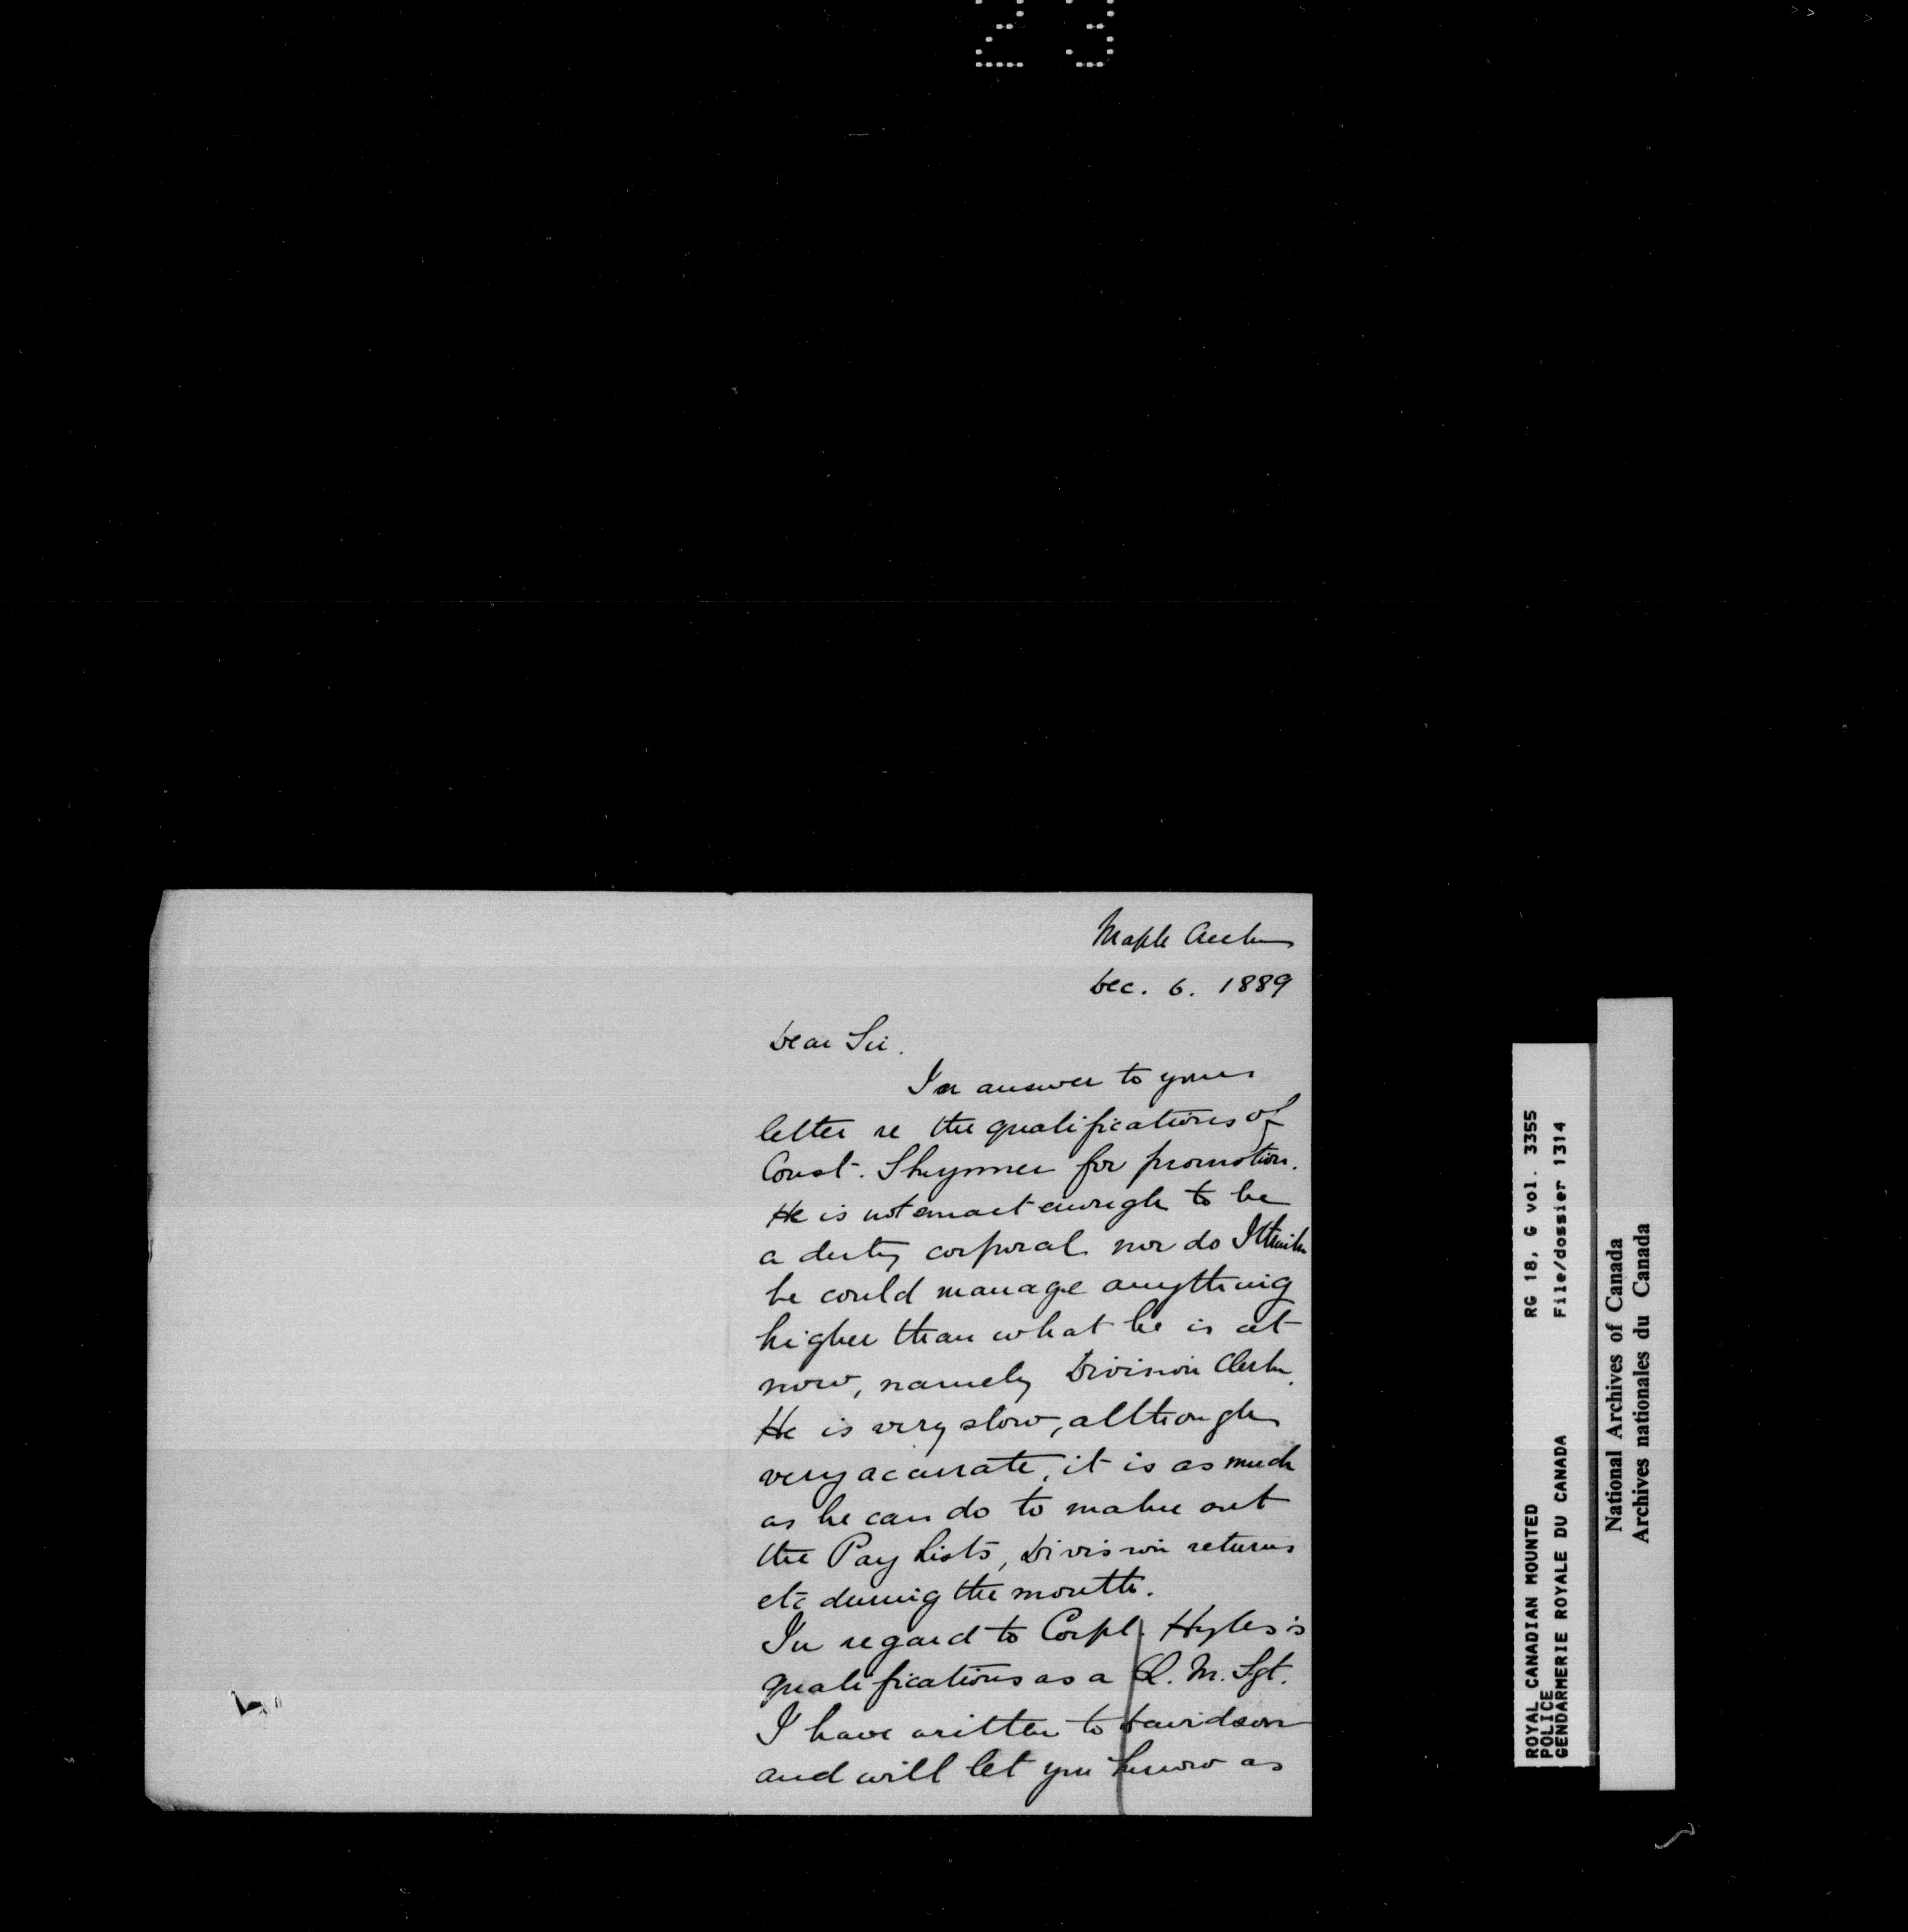 23
Maple Creek
Dec. 6. 1889
Dear Sir.
In answer to your
letter re the qualifications of
Const. Skynner for promotion.
He is not smart enough to be
a duty corporal nor do I think
he could manage anything
higher than what he is at
now, namely Division Clerk.
He is very slow, although
very accurate, it is as much
as he can do to make out
the Pay Lists, Division returns
etc during the month.
In regard to Corpl. Hyles's
qualifications as a Q. M. Sgt.
I have written to Davidson
and will let you know as
ROYAL CANADIAN MOUNTED
POLICE
GENDARMERIE ROYALE DU CANADA
RG 18, G vol. 3355
File/dossier 1314
National Archives of Canada
Archives nationales du Canada